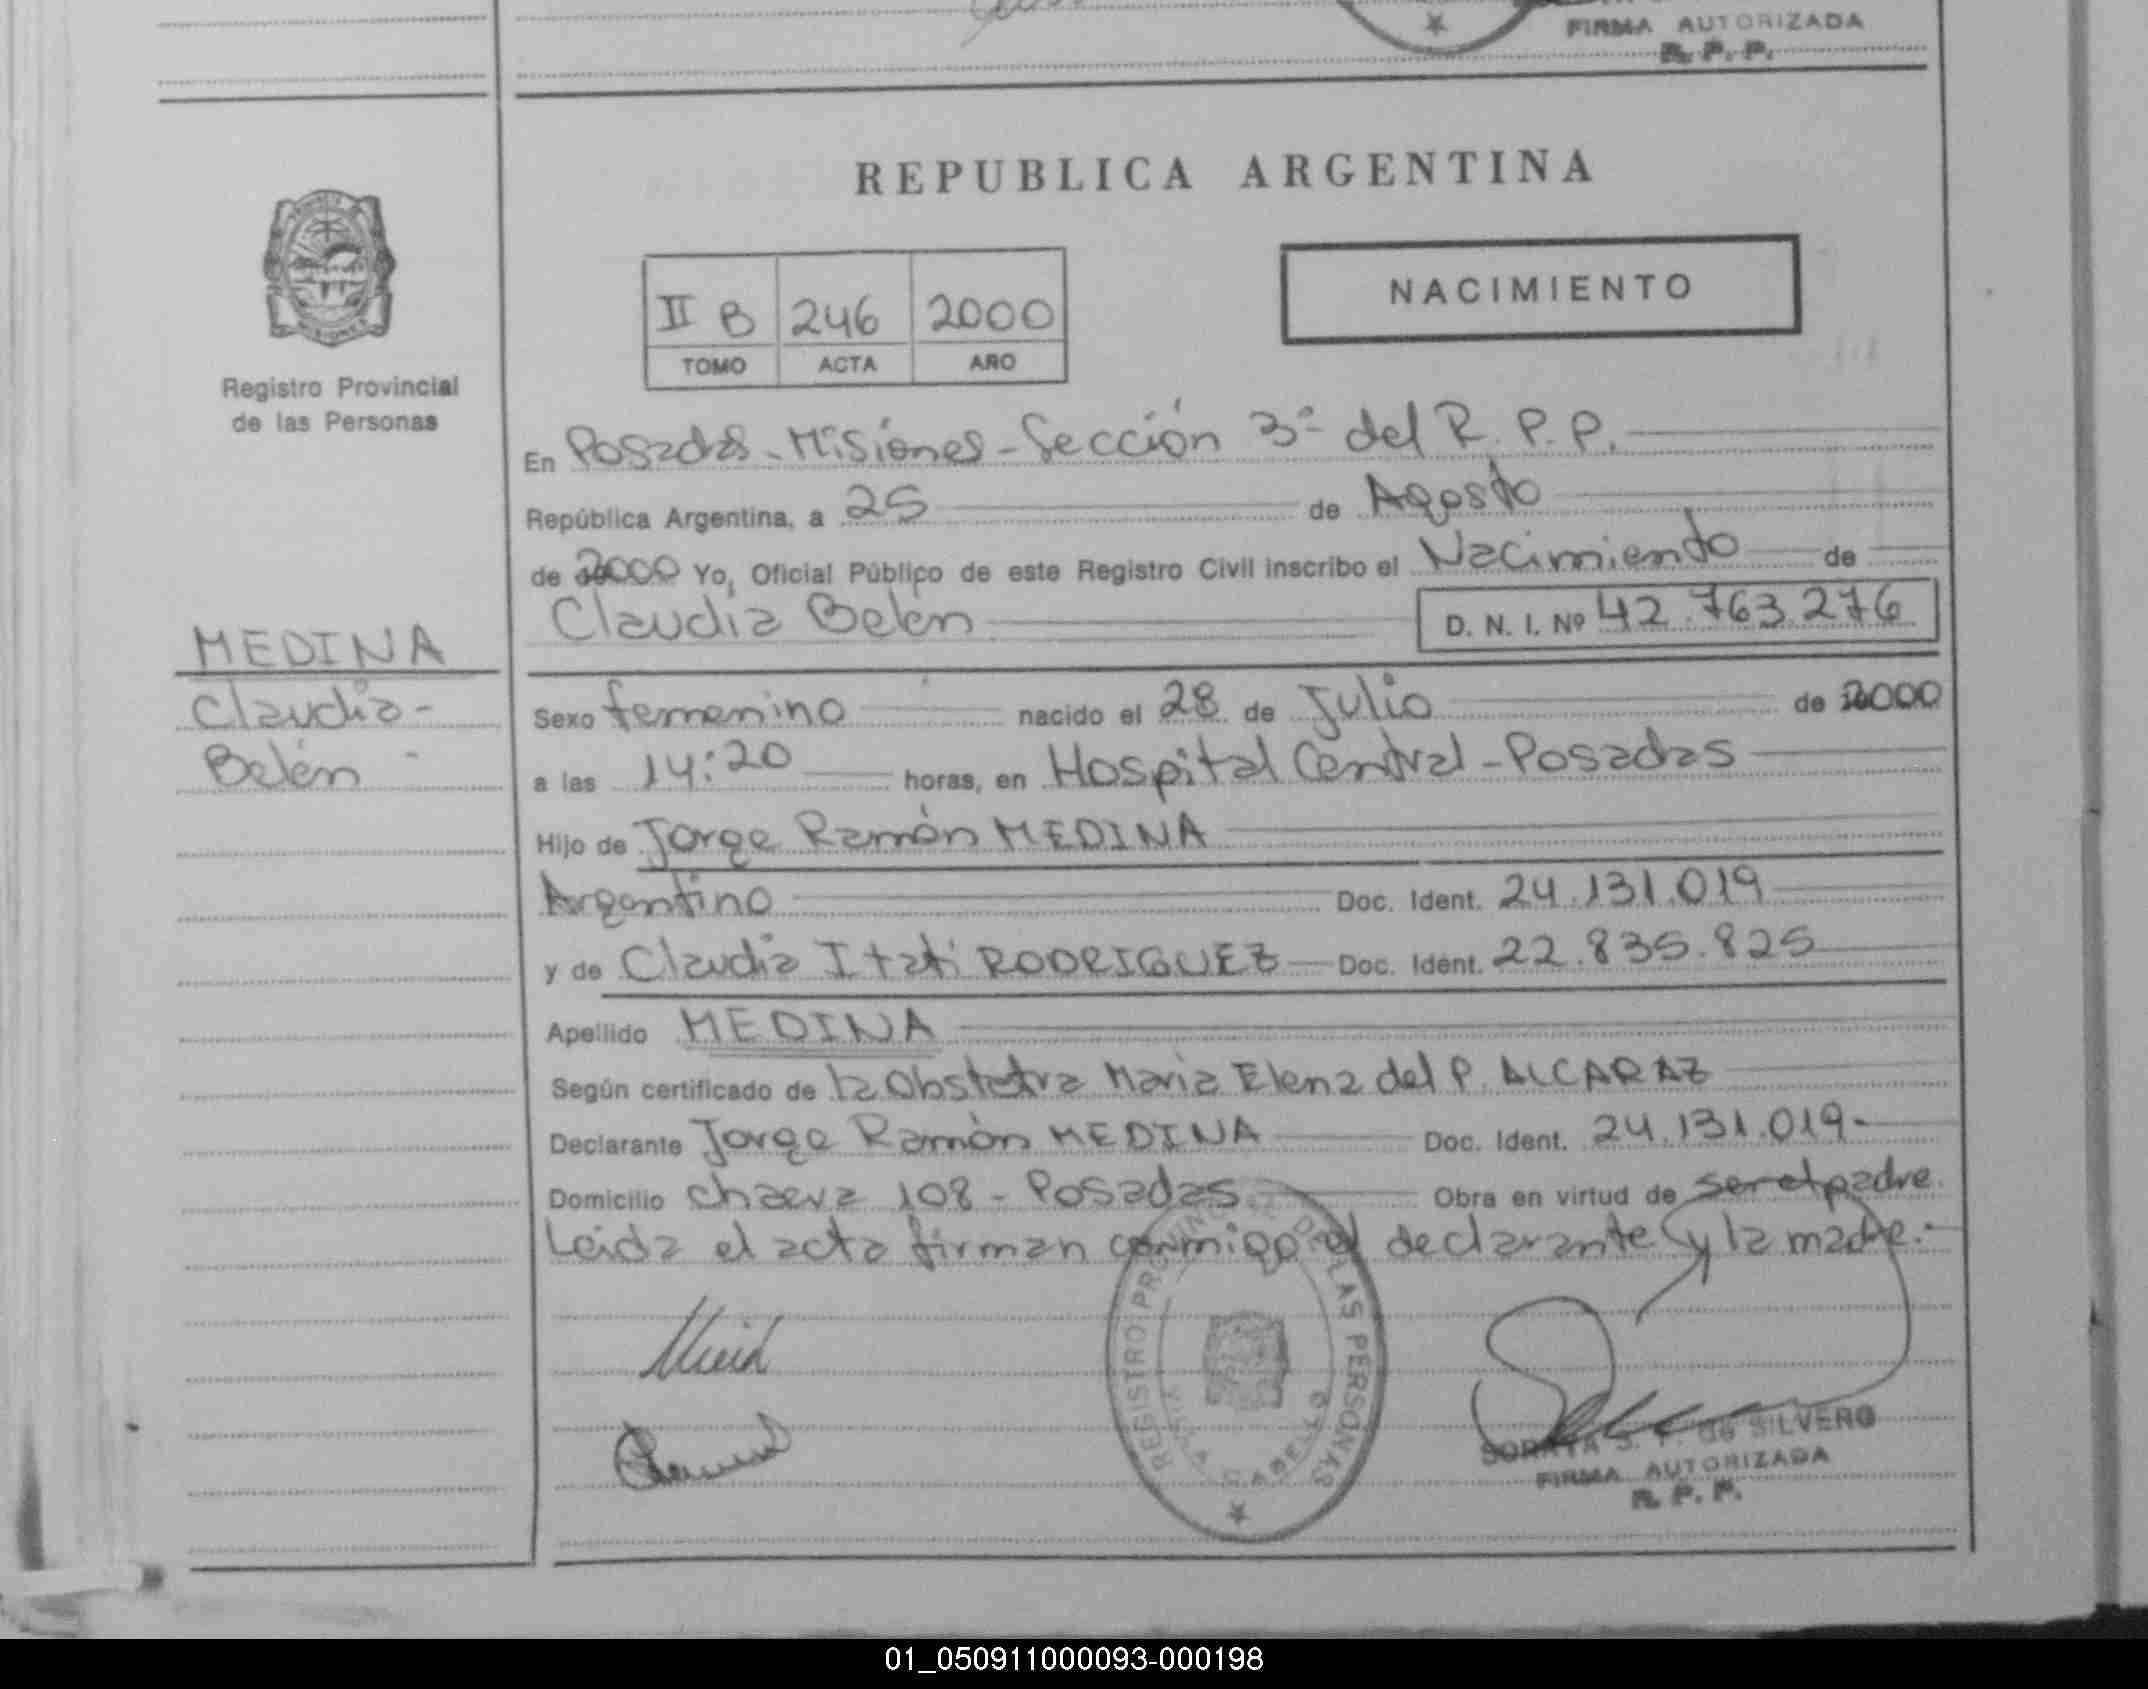 FIRMA AUTORIZADA
R. P. P.
REPUBLICA ARGENTINA
NACIMIENTO
II B 246 2000
TOMO ACTA AÑO
Registro Provincial
de las Personas
En Posadas - Misiones - Sección 3ª del R. P. P.
República Argentina, a 25 de Agosto
de 2000 Yo, Oficial Público de este Registro Civil inscribo el Nacimiento de
Claudia Belen D. N. I. Nº 42.763.276
MEDINA
Claudia-
Belén -
Sexo femenino nacido el 28 de Julio de 2000
a las 14:20 horas, en Hospital Central - Posadas
Hijo de Jorge Ramón MEDINA
Argentino Doc. Ident. 24.131.019
y de Claudia Itati RODRIGUEZ Doc. Ident. 22.835.825
Apellido MEDINA
Según certificado de la Obstetra Maria Elena del P. ALCARAZ
Declarante Jorge Ramón MEDINA Doc. Ident. 24.131.019-
Domicilio 108 - Posadas Obra en virtud de ser el padre.
Leida el acta firman conmigo el declarante y la madre.-
REGISTRO PROVINCIAL DE LAS PERSONAS
VILLA CABELLO
SORAYA S. F. de SILVERO
FIRMA AUTORIZADA
R. P. P.
01_050911000093-000198